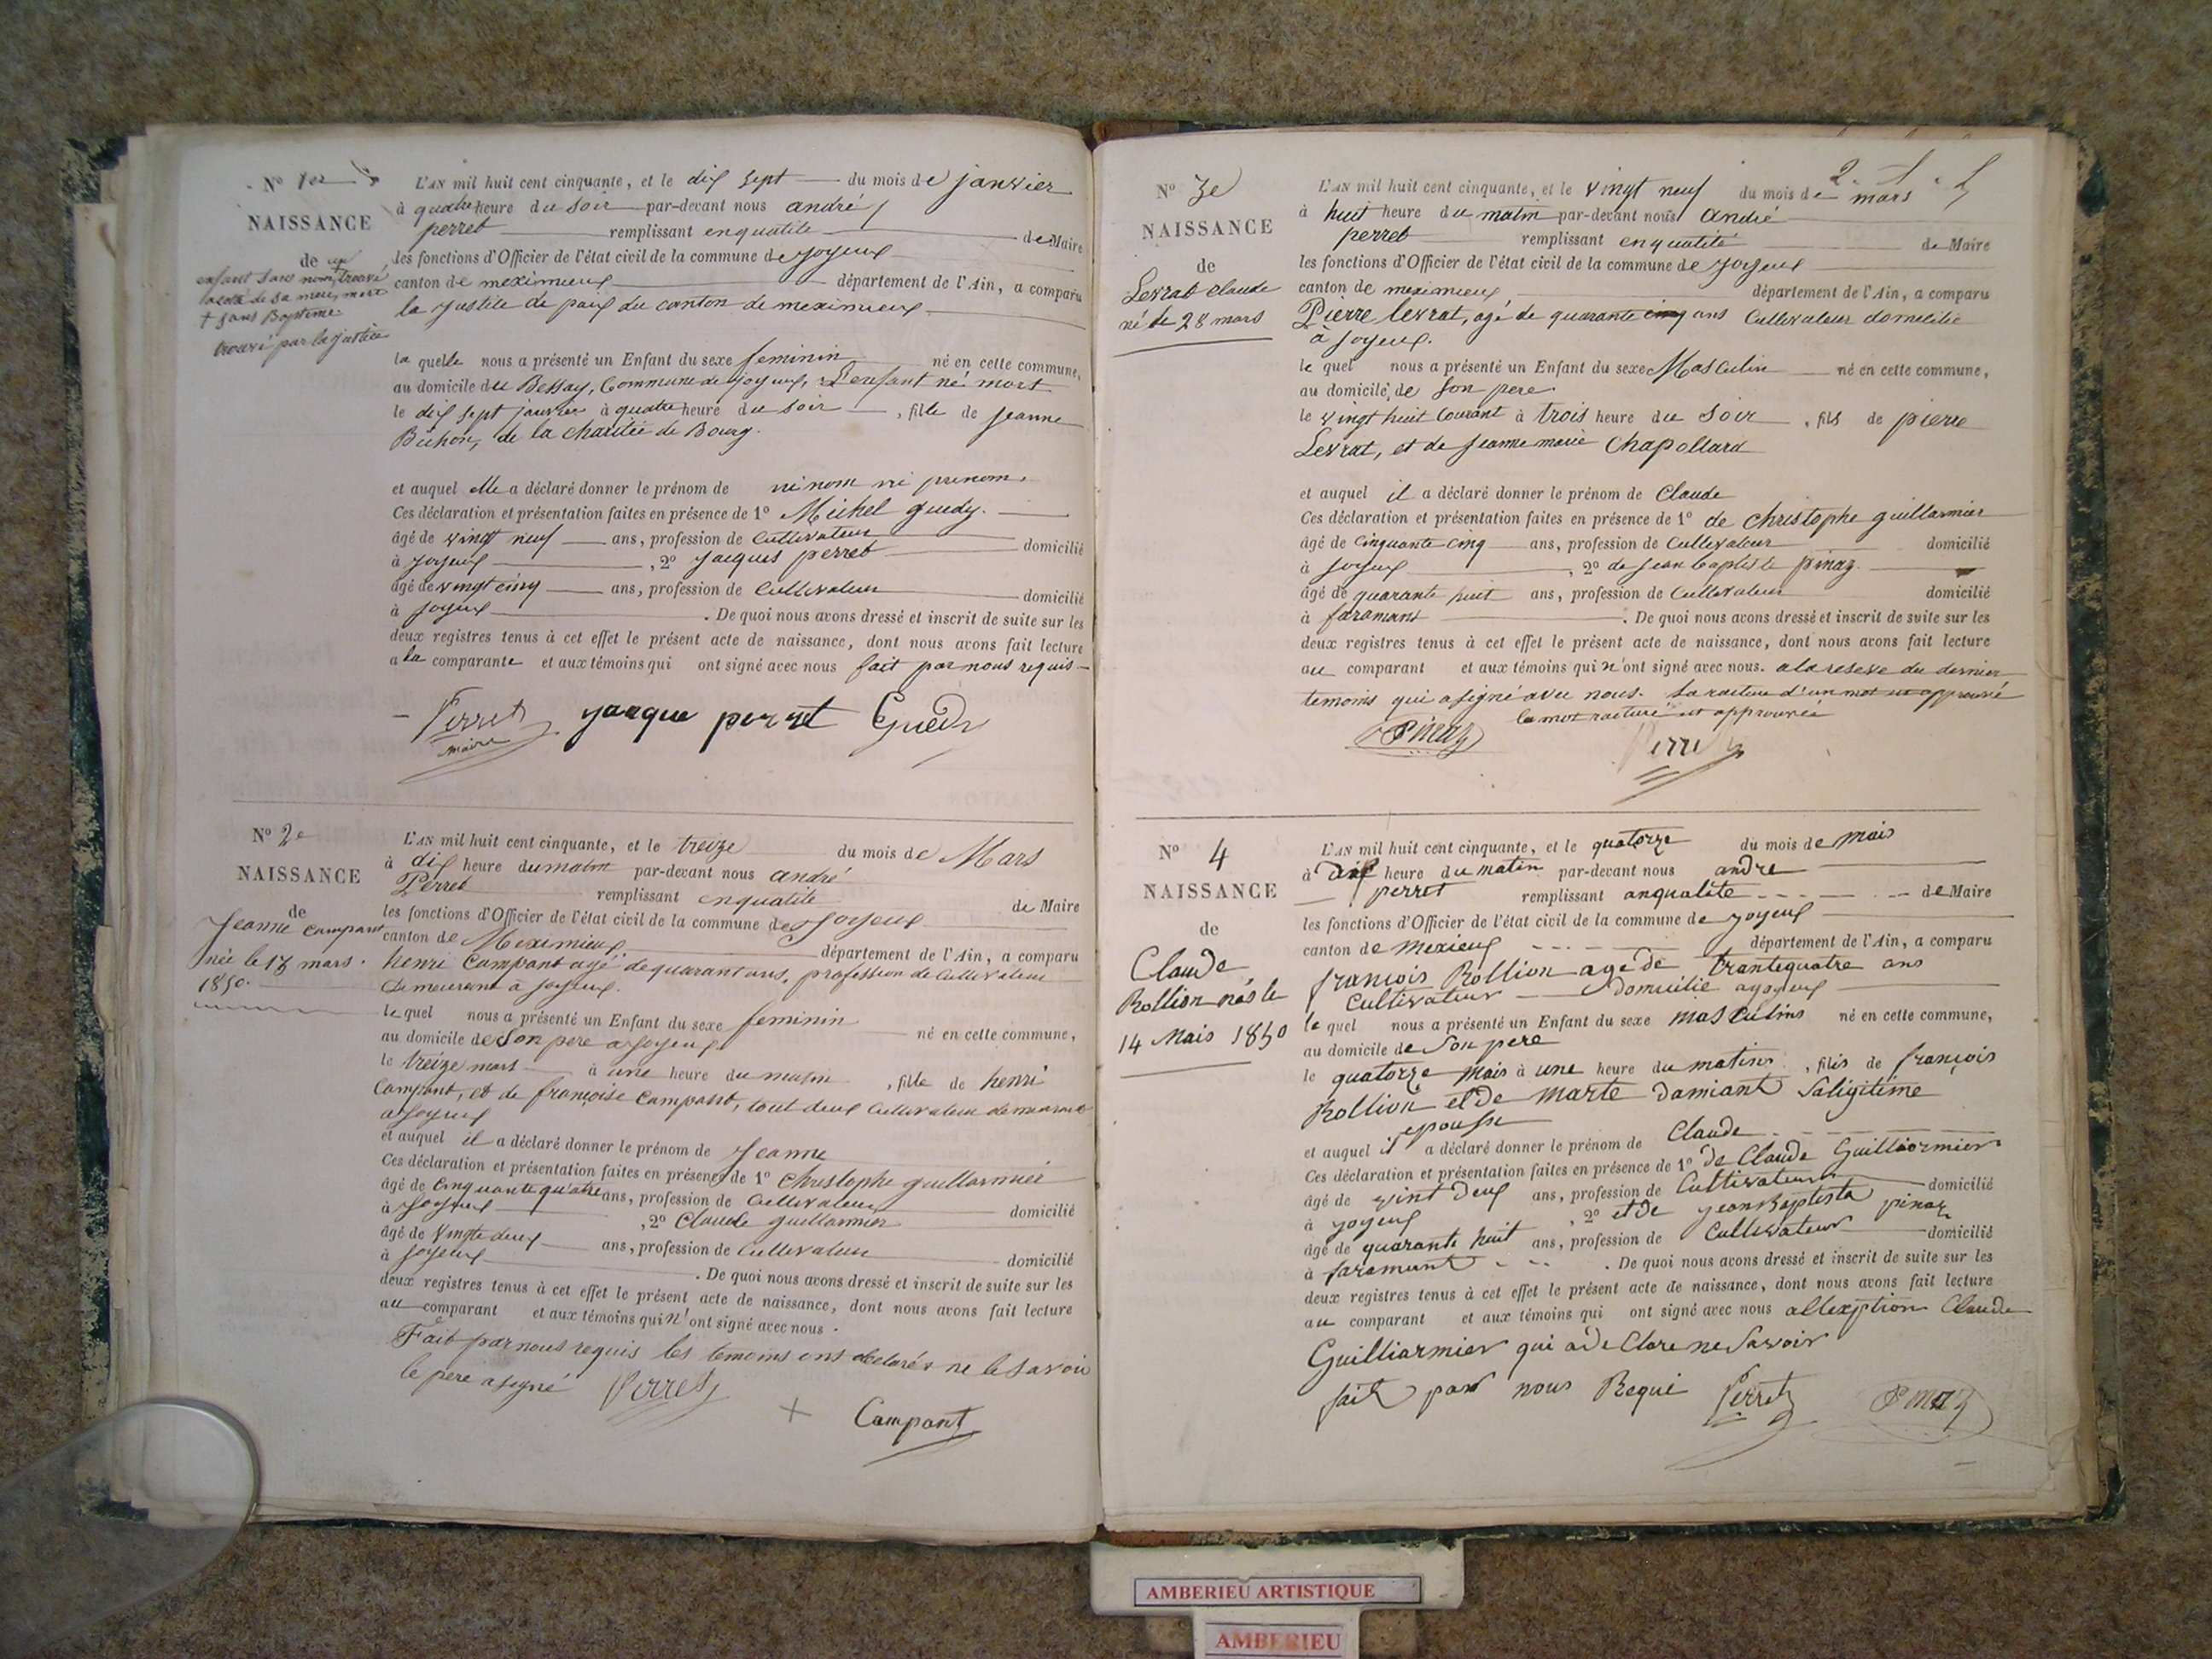 N° 1er
NAISSANCE
de un
enfant sans nom, trouvé
a coté de sa mere, mort
+ sans Bapteme
trouvé par la justice
L'AN mil huit cent cinquante, et le dix sept du mois de janvier
à quatre heure du soir par-devant nous andré
perret remplissant enqualité de Maire
les fonctions d'Officier de l'état civil de la commune de joyeux
canton de meximieux département de l'Ain, a comparu
la justice de paix du canton de meximieux
la quelle nous a présenté un Enfant du sexe feminin né en cette commune,
au domicile du Bessay, Commune de joyeux, L'enfant né mort
le dix sept janvier à quatre heure du soir, fille de jeanne
Buchon, de la charitée de Bourg.
et auquel elle a déclaré donner le prénom de ni nom ni prenom.
Ces déclaration et présentation faites en présence de 1° Michel guedy.
âgé de vingt neuf ans, profession de Cultivateur domicilié
à joyeux, 2° jacques perret
âgé de vingt cinq ans, profession de Cultivateur domicilié
à joyeux. De quoi nous avons dressé et inscrit de suite sur les
deux registres tenus à cet effet le présent acte de naissance, dont nous avons fait lecture
a la comparante et aux témoins qui ont signé avec nous fait par nous requis
Perret yaeque perret Guedy
maire
N° 2e
NAISSANCE
de
Jeanne Campant
née le 13 mars.
1850.
L'AN mil huit cent cinquante, et le treize du mois de Mars
à dix heure du matin par-devant nous andré
Perret remplissant enqualité de Maire
les fonctions d'Officier de l'état civil de la commune de joyeux
canton de Meximieux département de l'Ain, a comparu
henri Campant agé de quarant ans, profession de Cultivateur
demeurant à joyeux.
le quel nous a présenté un Enfant du sexe feminin né en cette commune,
au domicile de Son pere a joyeux
le treize mars à une heure du matin, fille de henri
Campant, et de françoise Campant, tout deux Cultivateur demeurant
a joyeux
et auquel il a déclaré donner le prénom de Jeanne
Ces déclaration et présentation faites en présence de 1° Christophe guillarmier
âgé de Cinquante quatre ans, profession de Cultivateur domicilié
à joyeux, 2° Claude guillarmier
âgé de Vingte deux ans, profession de Cultivateur domicilié
à joyeux. De quoi nous avons dressé et inscrit de suite sur les
deux registres tenus à cet effet le présent acte de naissance, dont nous avons fait lecture
au comparant et aux témoins qui n'ont signé avec nous.
Fait par nous requis les temoins ons declarés ne le savoir
le père a signé Perret
+ Campant
N° 3e
NAISSANCE
de
Levrat Claude
né le 28 mars
2
L'AN mil huit cent cinquante, et le vingt neuf du mois de mars
à huit heure du matin par-devant nous André
perret remplissant enqualité de Maire
les fonctions d'Officier de l'état civil de la commune de joyeux
canton de meximieux département de l'Ain, a comparu
Pierre levrat, agé de quarante cinq ans Cultivateur domicilié
à joyeux.
le quel nous a présenté un Enfant du sexe Masculin né en cette commune,
au domicile de son pere
le vingt huit Courant à trois heure du Soir, fils de pierre
Levrat, et de jeanne marie Chapollard
et auquel il a déclaré donner le prénom de Claude
Ces déclaration et présentation faites en présence de 1° de Christophe guillarmier
âgé de Cinquante cinq ans, profession de Cultivateur domicilié
à joyeux, 2° de jean baptiste pinaz
âgé de quarante huit ans, profession de Cultivateur domicilié
à faramans. De quoi nous avons dressé et inscrit de suite sur les
deux registres tenus à cet effet le présent acte de naissance, dont nous avons fait lecture
au comparant et aux témoins qui n'ont signé avec nous. a la reserve du dernier
temoins qui a signé avec nous. La rature d'un mot est approuvé
le mot raturé est approuvée
Pinaz
Perret
N° 4
NAISSANCE
de
Claude
Rollion nés le
14 Mais 1850
L'AN mil huit cent cinquante, et le quatorze du mois de mais
à dix heure du matin par-devant nous andre
perret remplissant anqualite de Maire
les fonctions d'Officier de l'état civil de la commune de joyeux
canton de mexieux département de l'Ain, a comparu
françois Rollion age de trantequatre ans
Cultivateur Domicilié a joyeux
le quel nous a présenté un Enfant du sexe masculins né en cette commune,
au domicile de Son pere
le quatorze mais à une heure du matins, filis de françois
Rollion et de marte Damiant Saligitime
epousse
et auquel il a déclaré donner le prénom de Claude
Ces déclaration et présentation faites en présence de 1° de Claude Guilliarmier
âgé de vint Deux ans, profession de Cultivateur domicilié
à joyeux, 2° et de jean Baptista pinaz
âgé de quarante huit ans, profession de Cultivateur domicilié
à faramant. De quoi nous avons dressé et inscrit de suite sur les
deux registres tenus à cet effet le présent acte de naissance, dont nous avons fait lecture
au comparant et aux témoins qui ont signé avec nous allexption Claude
Guilliarmier qui a de Clare ne Savoir
fait par nous Requi Perret Pinaz
AMBERIEU ARTISTIQUE
AMBERIEU